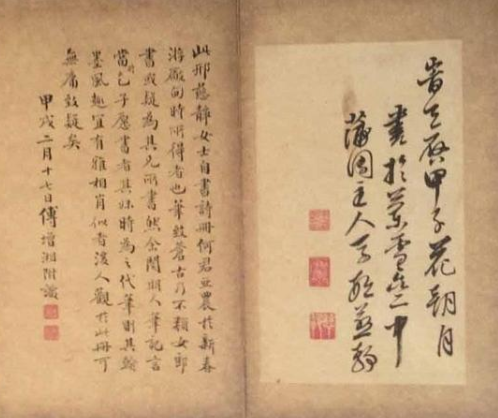 旹天啟甲子花朝月
書於蘭雪齋中
蒲團主人馬邢慈靜
此邢慈靜女士自書詩冊何君亞農於新春
游廠甸時所得者也筆致蒼古乃不類女郎
書或疑為其兄所書然余閱明人筆記言
當時乞子愿書者其妹時為之代筆則其翰
墨風趣宜有雅相肖似者後人觀於此冊可
無庸致疑矣
甲戌二月十七日傅增湘附識